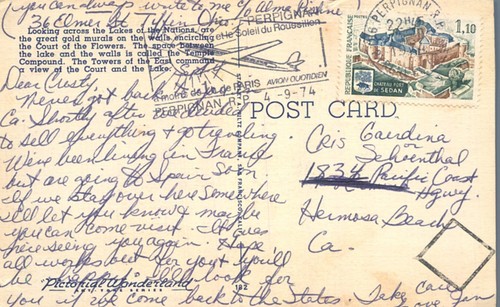 (you can always write to me c/o Alma
36 Elmer St Tiffin Ohio)
Looking across the Lakes of the Nations, are
the great gold murals on the walls encircling
the Court of the Flowers. The space between
the lake and the walls is called the Temple
Compound. The Towers of the East command
a view of the Court and the Lake.
PERPIGNAN
et le Soleil du Roussillon
PARIS
AVION QUOTIDIEN
PERPIGNAN R.P. 4-9-74
PERPIGNAN R.P.
22H
1,10
REPUBLIQUE FRANÇAISE
POSTES
CHATEAU FORT
DE SEDAN
Dear Cristy,
Never got back to
Ca. Shortly after we decided
to sell everything & go traveling.
We've been living in France
but are going to Spain soon
If we stay over here somewhere
I'll let you know & maybe
you can come visit. It was
nice seeing you again. Hope
all works out for you & you'll
be happy. I'll look for
you if we come back to the States. Take care
Love
POST CARD
Cris Gaerdina
or
Schoenthal
1834 Pacific Coast
Hgwy.
Hermosa Beach
Ca.
Pictorial Wonderland
ART TONE SERIES
182